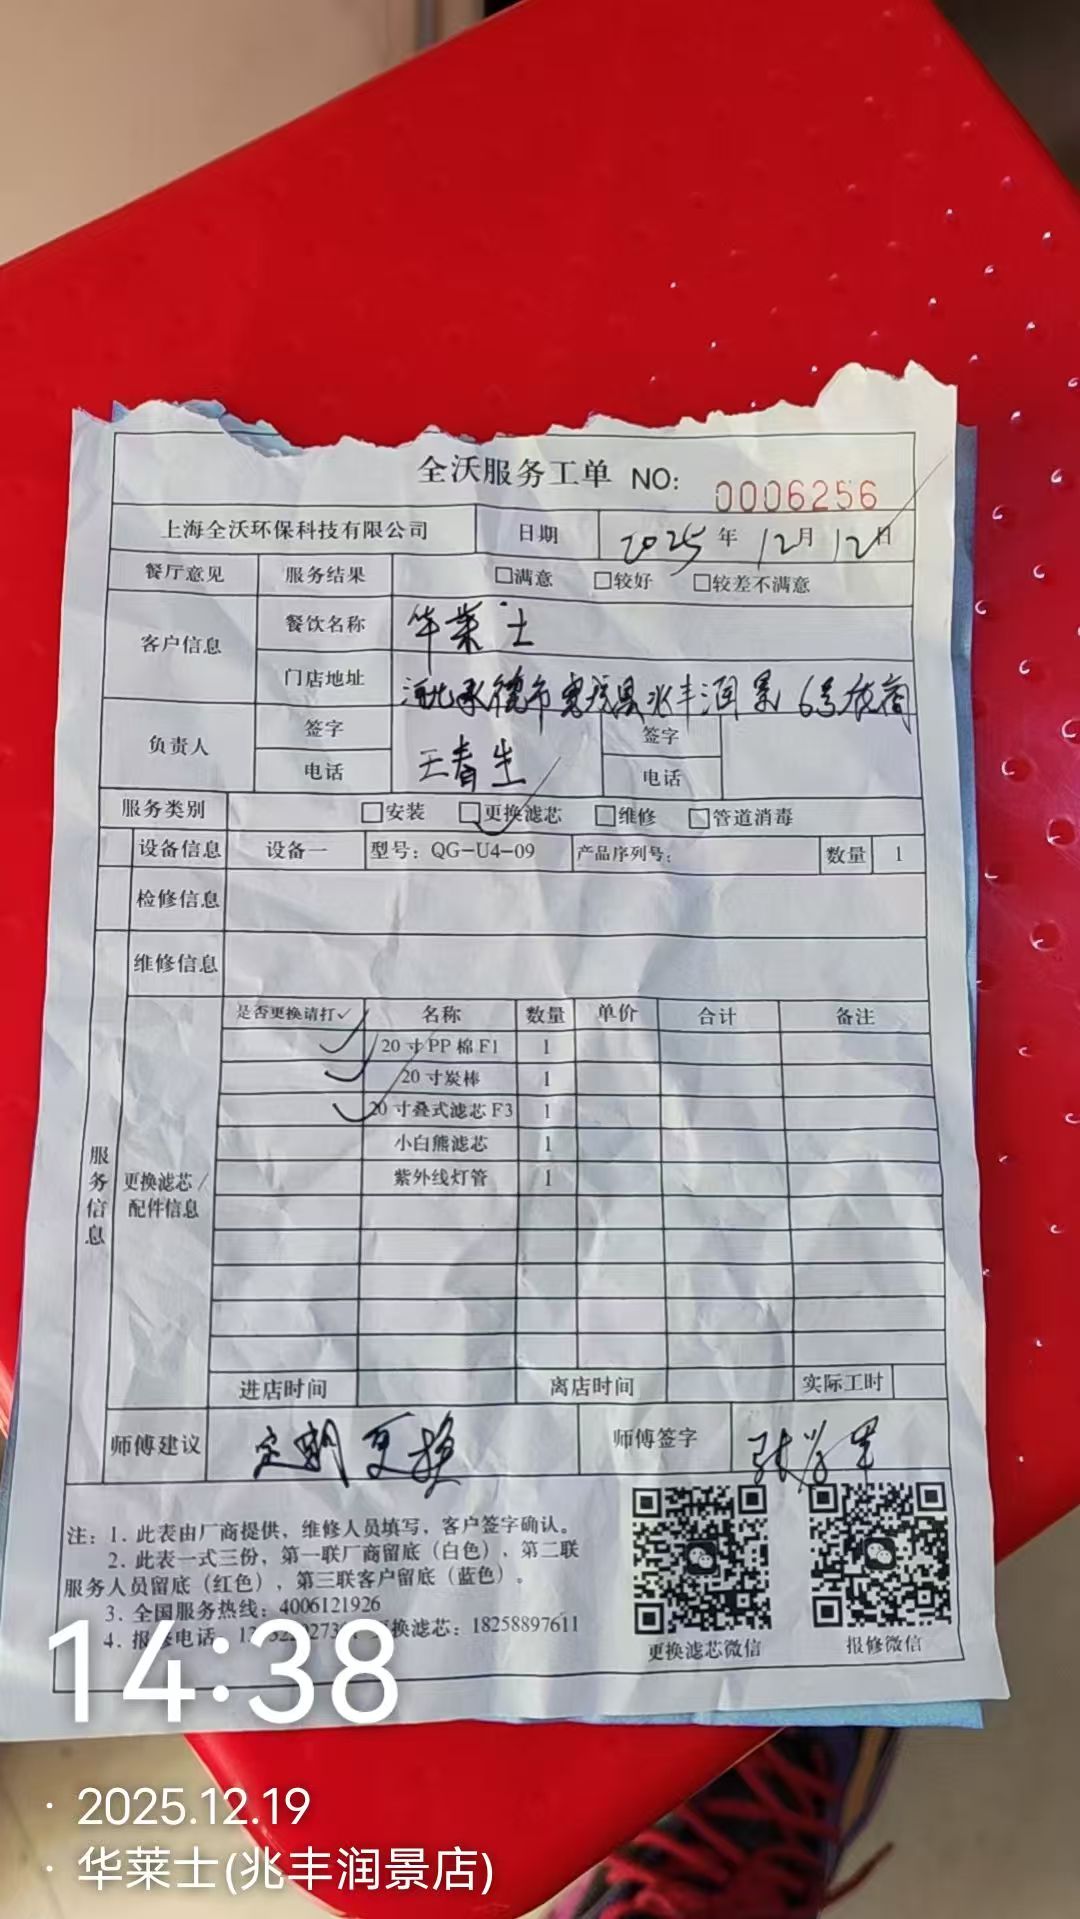 全沃服务工单 NO: 0006256
上海全沃环保科技有限公司 日期 2025年12月12日
餐厅意见 服务结果 □满意 □较好 □较差不满意
客户信息 餐饮名称 华莱士
门店地址 河北承德市宽城县兆丰润景6号底商
负责人 签字 王春生 签字
电话 电话
服务类别 □安装 □更换滤芯 □维修 □管道消毒
设备信息 设备一 型号：QG-U4-09 产品序列号： 数量 1
检修信息
维修信息
服务信息
更换滤芯/配件信息
是否更换请打✓ 名称 数量 单价 合计 备注
✓ 20寸PP棉F1 1
✓ 20寸炭棒 1
✓ 20寸叠式滤芯F3 1
小白熊滤芯 1
紫外线灯管 1
进店时间 离店时间 实际工时
师傅建议 定期更换 师傅签字
注：1. 此表由厂商提供，维修人员填写，客户签字确认。
2. 此表一式三份，第一联厂商留底（白色），第二联
服务人员留底（红色），第三联客户留底（蓝色）。
3. 全国服务热线：4006121926
4. 报修电话 更换滤芯：18258897611
更换滤芯微信 报修微信
14:38
· 2025.12.19
· 华莱士(兆丰润景店)